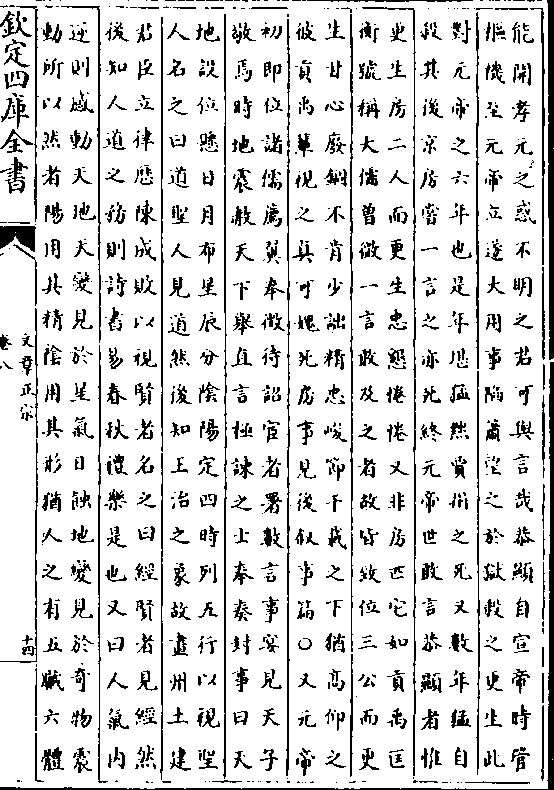 能開孝元之惑不明之君可與言哉恭顯自宣帝時管
樞機至元帝立遂大用事陷蕭望之於獄殺之更生此
對元帝之六年也是年堪猛黜賈捐之死又數年猛自
殺其後京房嘗一言之亦死終元帝世敢言恭顯者惟
更生房二人而更生忠懇惓惓又非房匹它如貢禹匡
衡號稱大儒曾微一言敢及之者故皆致位三公而更
生甘心廢錮不肯少詘精忠峻節千載之下猶高仰之
彼貢禹輩視之真可媿死房事見後叙事篇○又元帝
初即位諸儒薦翼奉徵待詔宦者署數言事宴見天子
敬焉時地震敕天下舉直言極諫之士奉奏封事曰天
地設位懸日月布星辰分陰陽定四時列五行以視聖
人名之曰道聖人見道然後知王治之象故畫州土建
君臣立律歷陳成敗以視賢者名之曰經賢者見經然
後知人道之務則詩書易春秋禮樂是也又曰人氣内
逆則感動天地天變見於星氣日蝕地變見於奇物震
動所以然者陽用其精陰用其形猶人之有五臟六體
欽定四庫全書
文章正宗
卷八
十四